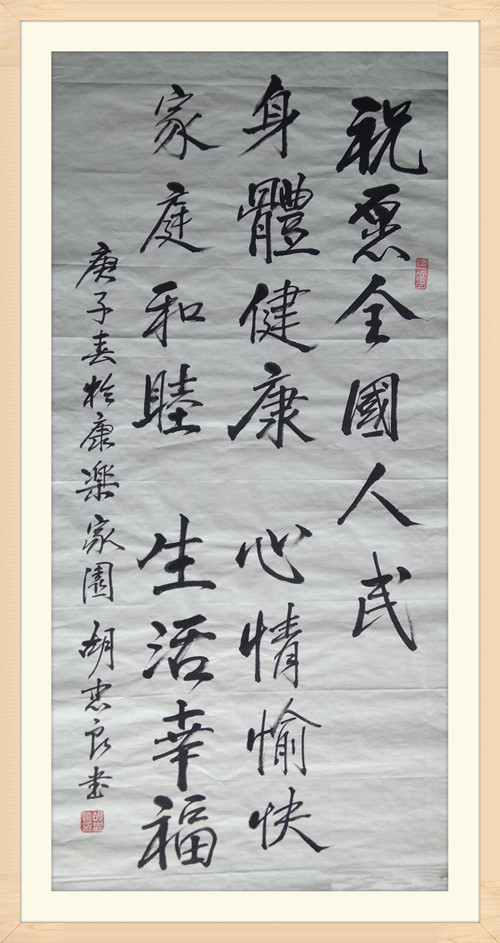 祝愿全國人民
身體健康 心情愉快
家庭和睦 生活幸福
庚子春於康樂家園 胡忠良书